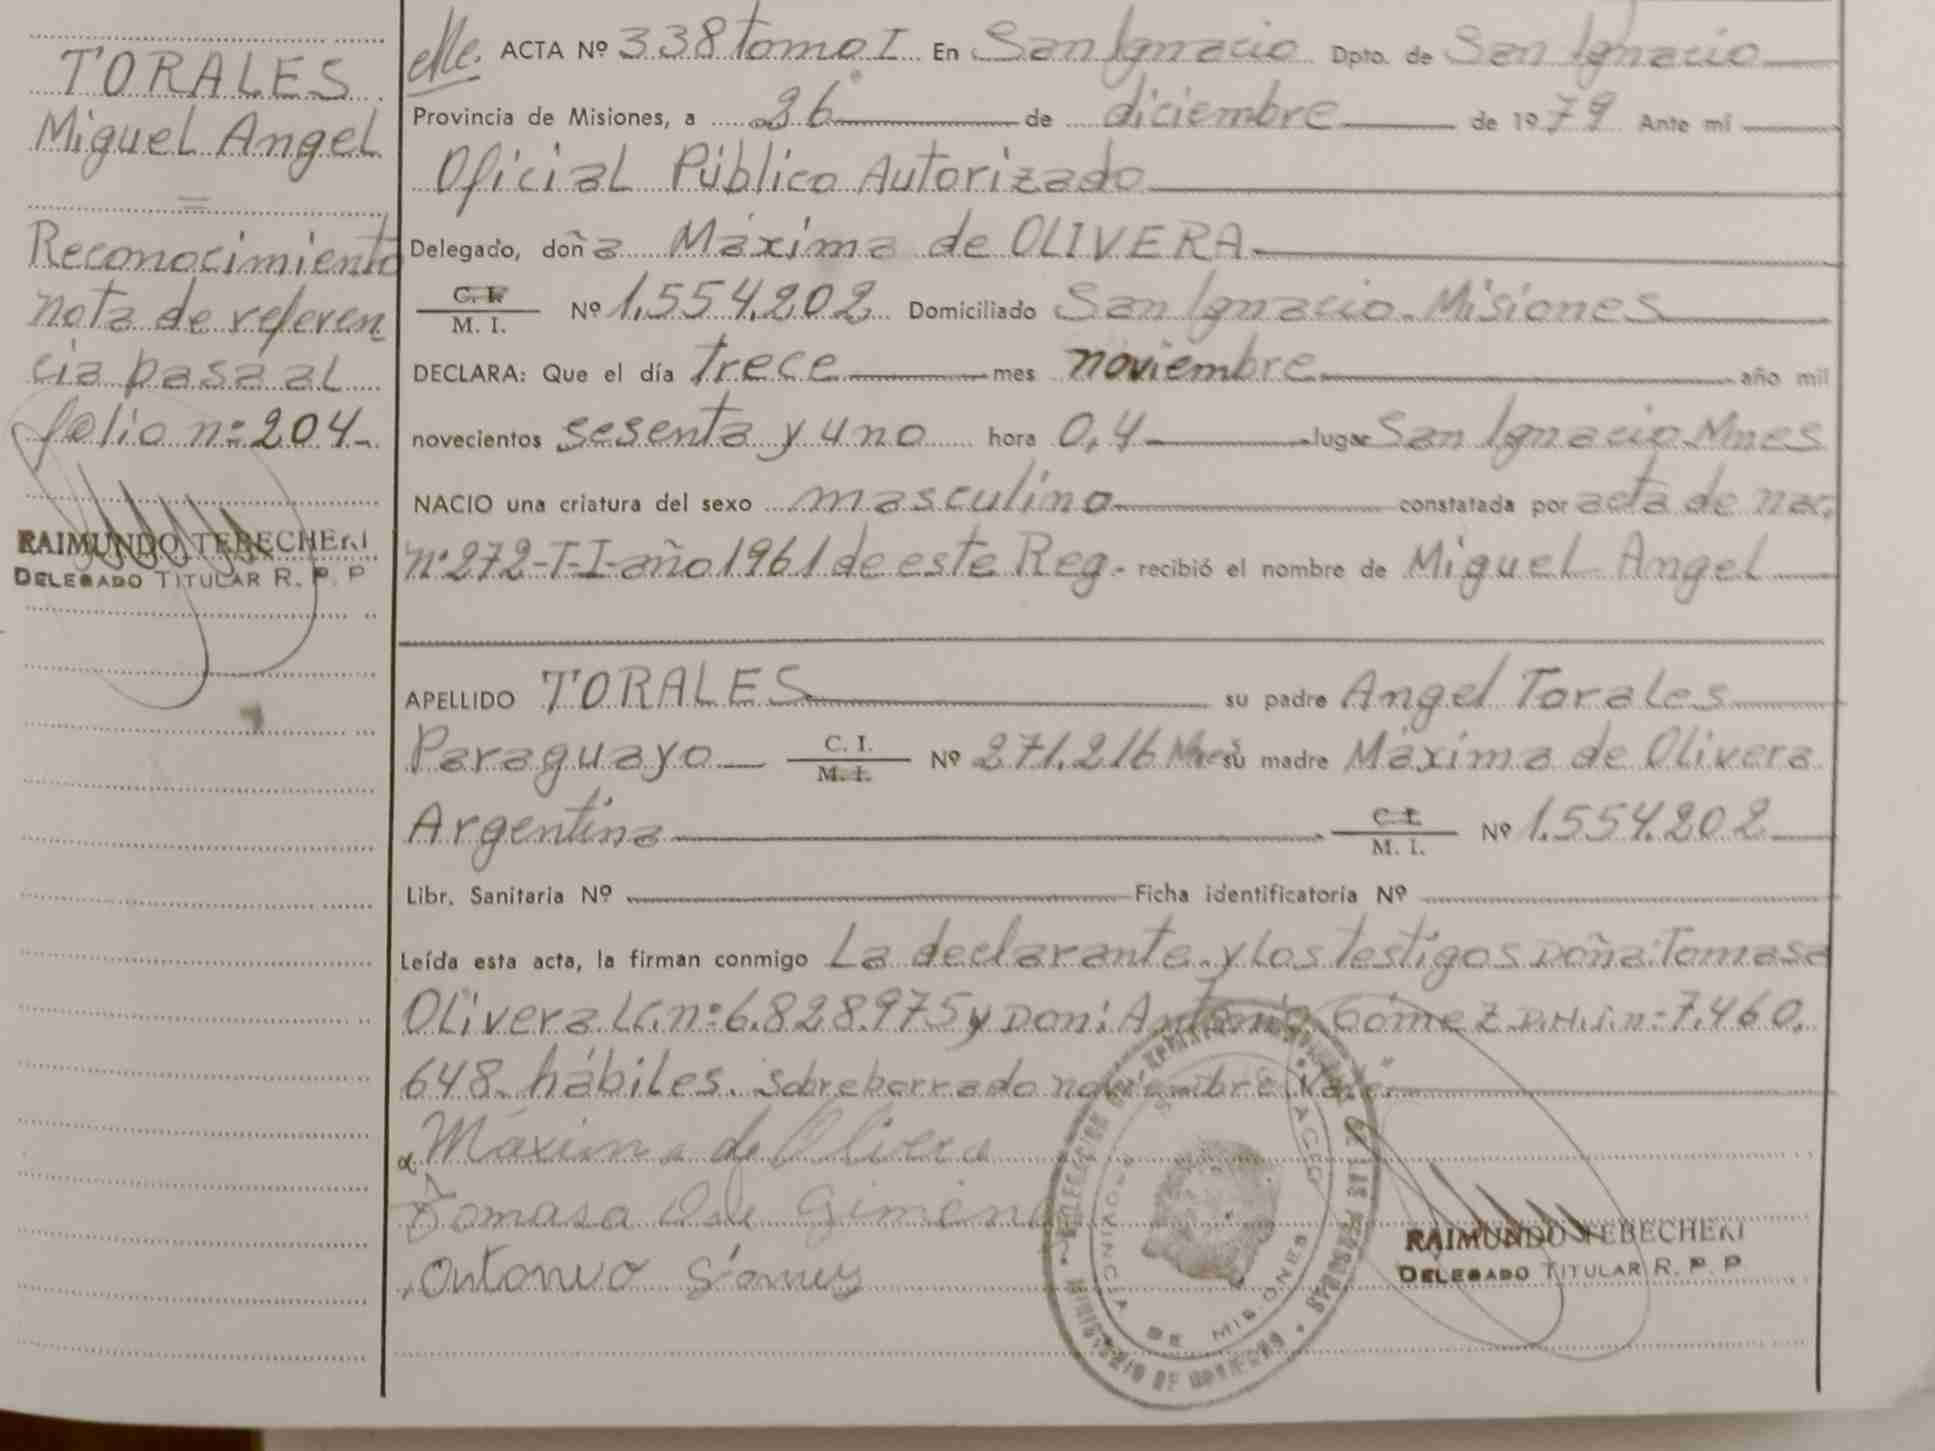 TORALES
Miguel Angel
=
Reconocimiento
nota de referen
cia pasa al
folio nº 204-.
RAIMUNDO TEBECHERI
DELEGADO TITULAR R. P. P
ACTA Nº 338 tomo I En San Ignacio Dpto. de San Ignacio
Provincia de Misiones, a 26 de diciembre de 1979 Ante mí
Oficial Público Autorizado
Delegado, doña Máxima de OLIVERA
C. I.
M. I. Nº 1.554.202 Domiciliado San Ignacio. Misiones
DECLARA: Que el día trece mes noviembre año mil
novecientos sesenta y uno hora 0,4 lugar San Ignacio Mnes
NACIO una criatura del sexo masculino constatada por acta de nac.
nº 272-T-I-año 1961 de este Reg.- recibió el nombre de Miguel Angel
APELLIDO TORALES su padre Angel Torales
Paraguayo C. I.
M. I. Nº 271.216 Mnes su madre Máxima de Olivera
Argentina C. I.
M. I. Nº 1.554.202
Libr. Sanitaria Nº Ficha identificatoria Nº
Leída esta acta, la firman conmigo La declarante. y Los testigos Doña: Tomasa
Olivera L.C. nº: 6.828.975 y Don: Antonio Gómez D.N.I. n:7.460.
648. hábiles. Sobreborrado noviembre. Vale.
Máxima de Olivera
Tomasa Gimenez
Antonio Gómez
PROVINCIA DE MISIONES
MINISTERIO DE GOBIERNO
RAIMUNDO TEBECHERI
DELEGADO TITULAR R. P. P